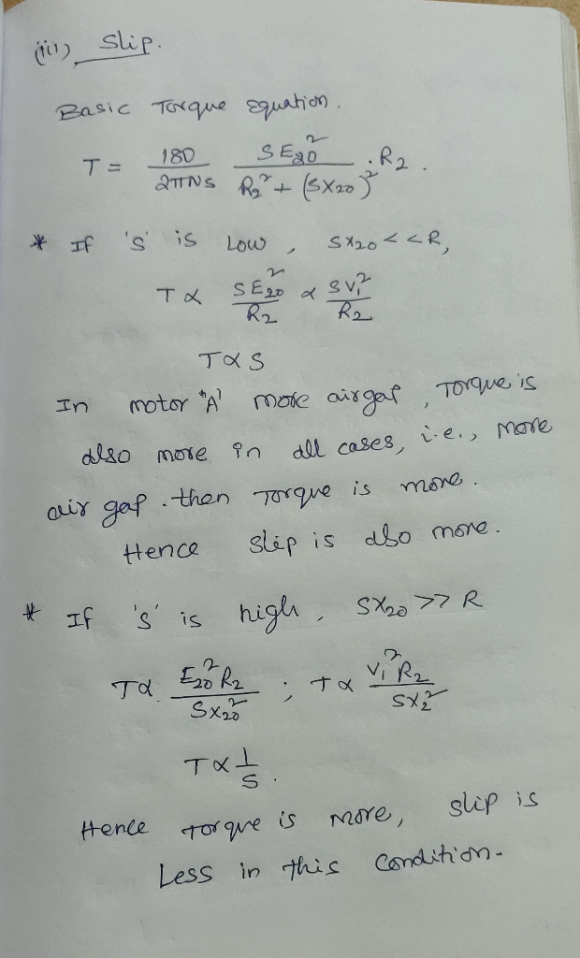 (iii) Slip.
Basic Torque Equation.
T = 180/2πNs SE₂₀²/R₂² + (SX₂₀)² . R₂.
* If 's' is Low, SX₂₀ << R,
T α SE₂₀²/R₂ α SV₁²/R₂
T α S
In motor "A' more airgap, Torque is
also more in all cases, i.e., more
air gap. then Torque is more.
Hence slip is also more.
* If 's' is high, SX₂₀ >> R
T α E₂₀² R₂/SX₂₀² ; T α V₁² R₂/SX₂²
T α 1/S.
Hence torque is more, slip is
Less in this condition.